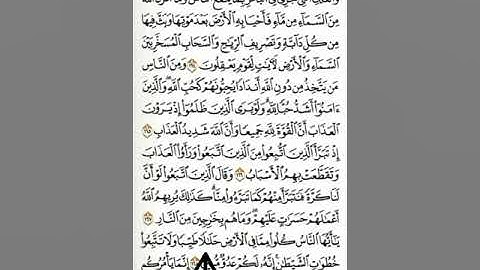 وَٱلْفُلْكِ ٱلَّتِى تَجْرِى فِى ٱلْبَحْرِ بِمَا يَنفَعُ ٱلنَّاسَ وَمَآ أَنزَلَ ٱللَّهُ
مِنَ ٱلسَّمَآءِ مِن مَّآءٍ فَأَحْيَا بِهِ ٱلْأَرْضَ بَعْدَ مَوْتِهَا وَبَثَّ فِيهَا
مِن كُلِّ دَآبَّةٍ وَتَصْرِيفِ ٱلرِّيَٰحِ وَٱلسَّحَابِ ٱلْمُسَخَّرِ بَيْنَ
ٱلسَّمَآءِ وَٱلْأَرْضِ لَءَايَٰتٍ لِّقَوْمٍ يَعْقِلُونَ ١٦٤ وَمِنَ ٱلنَّاسِ
مَن يَتَّخِذُ مِن دُونِ ٱللَّهِ أَندَادًا يُحِبُّونَهُمْ كَحُبِّ ٱللَّهِ وَٱلَّذِينَ
ءَامَنُوٓا۟ أَشَدُّ حُبًّا لِّلَّهِ وَلَوْ يَرَى ٱلَّذِينَ ظَلَمُوٓا۟ إِذْ يَرَوْنَ
ٱلْعَذَابَ أَنَّ ٱلْقُوَّةَ لِلَّهِ جَمِيعًا وَأَنَّ ٱللَّهَ شَدِيدُ ٱلْعَذَابِ ١٦٥
إِذْ تَبَرَّأَ ٱلَّذِينَ ٱتُّبِعُوا۟ مِنَ ٱلَّذِينَ ٱتَّبَعُوا۟ وَرَأَوُا۟ ٱلْعَذَابَ
وَتَقَطَّعَتْ بِهِمُ ٱلْأَسْبَابُ ١٦٦ وَقَالَ ٱلَّذِينَ ٱتَّبَعُوا۟ لَوْ أَنَّ
لَنَا كَرَّةً فَنَتَبَرَّأَ مِنْهُمْ كَمَا تَبَرَّءُوا۟ مِنَّا كَذَٰلِكَ يُرِيهِمُ ٱللَّهُ
أَعْمَٰلَهُمْ حَسَرَٰتٍ عَلَيْهِمْ وَمَا هُم بِخَٰرِجِينَ مِنَ ٱلنَّارِ ١٦٧
يَٰٓأَيُّهَا ٱلنَّاسُ كُلُوا۟ مِمَّا فِى ٱلْأَرْضِ حَلَٰلًا طَيِّبًا وَلَا تَتَّبِعُوا۟
خُطُوَٰتِ ٱلشَّيْطَٰنِ إِنَّهُۥ لَكُمْ عَدُوٌّ إِنَّمَا يَأْمُرُكُم